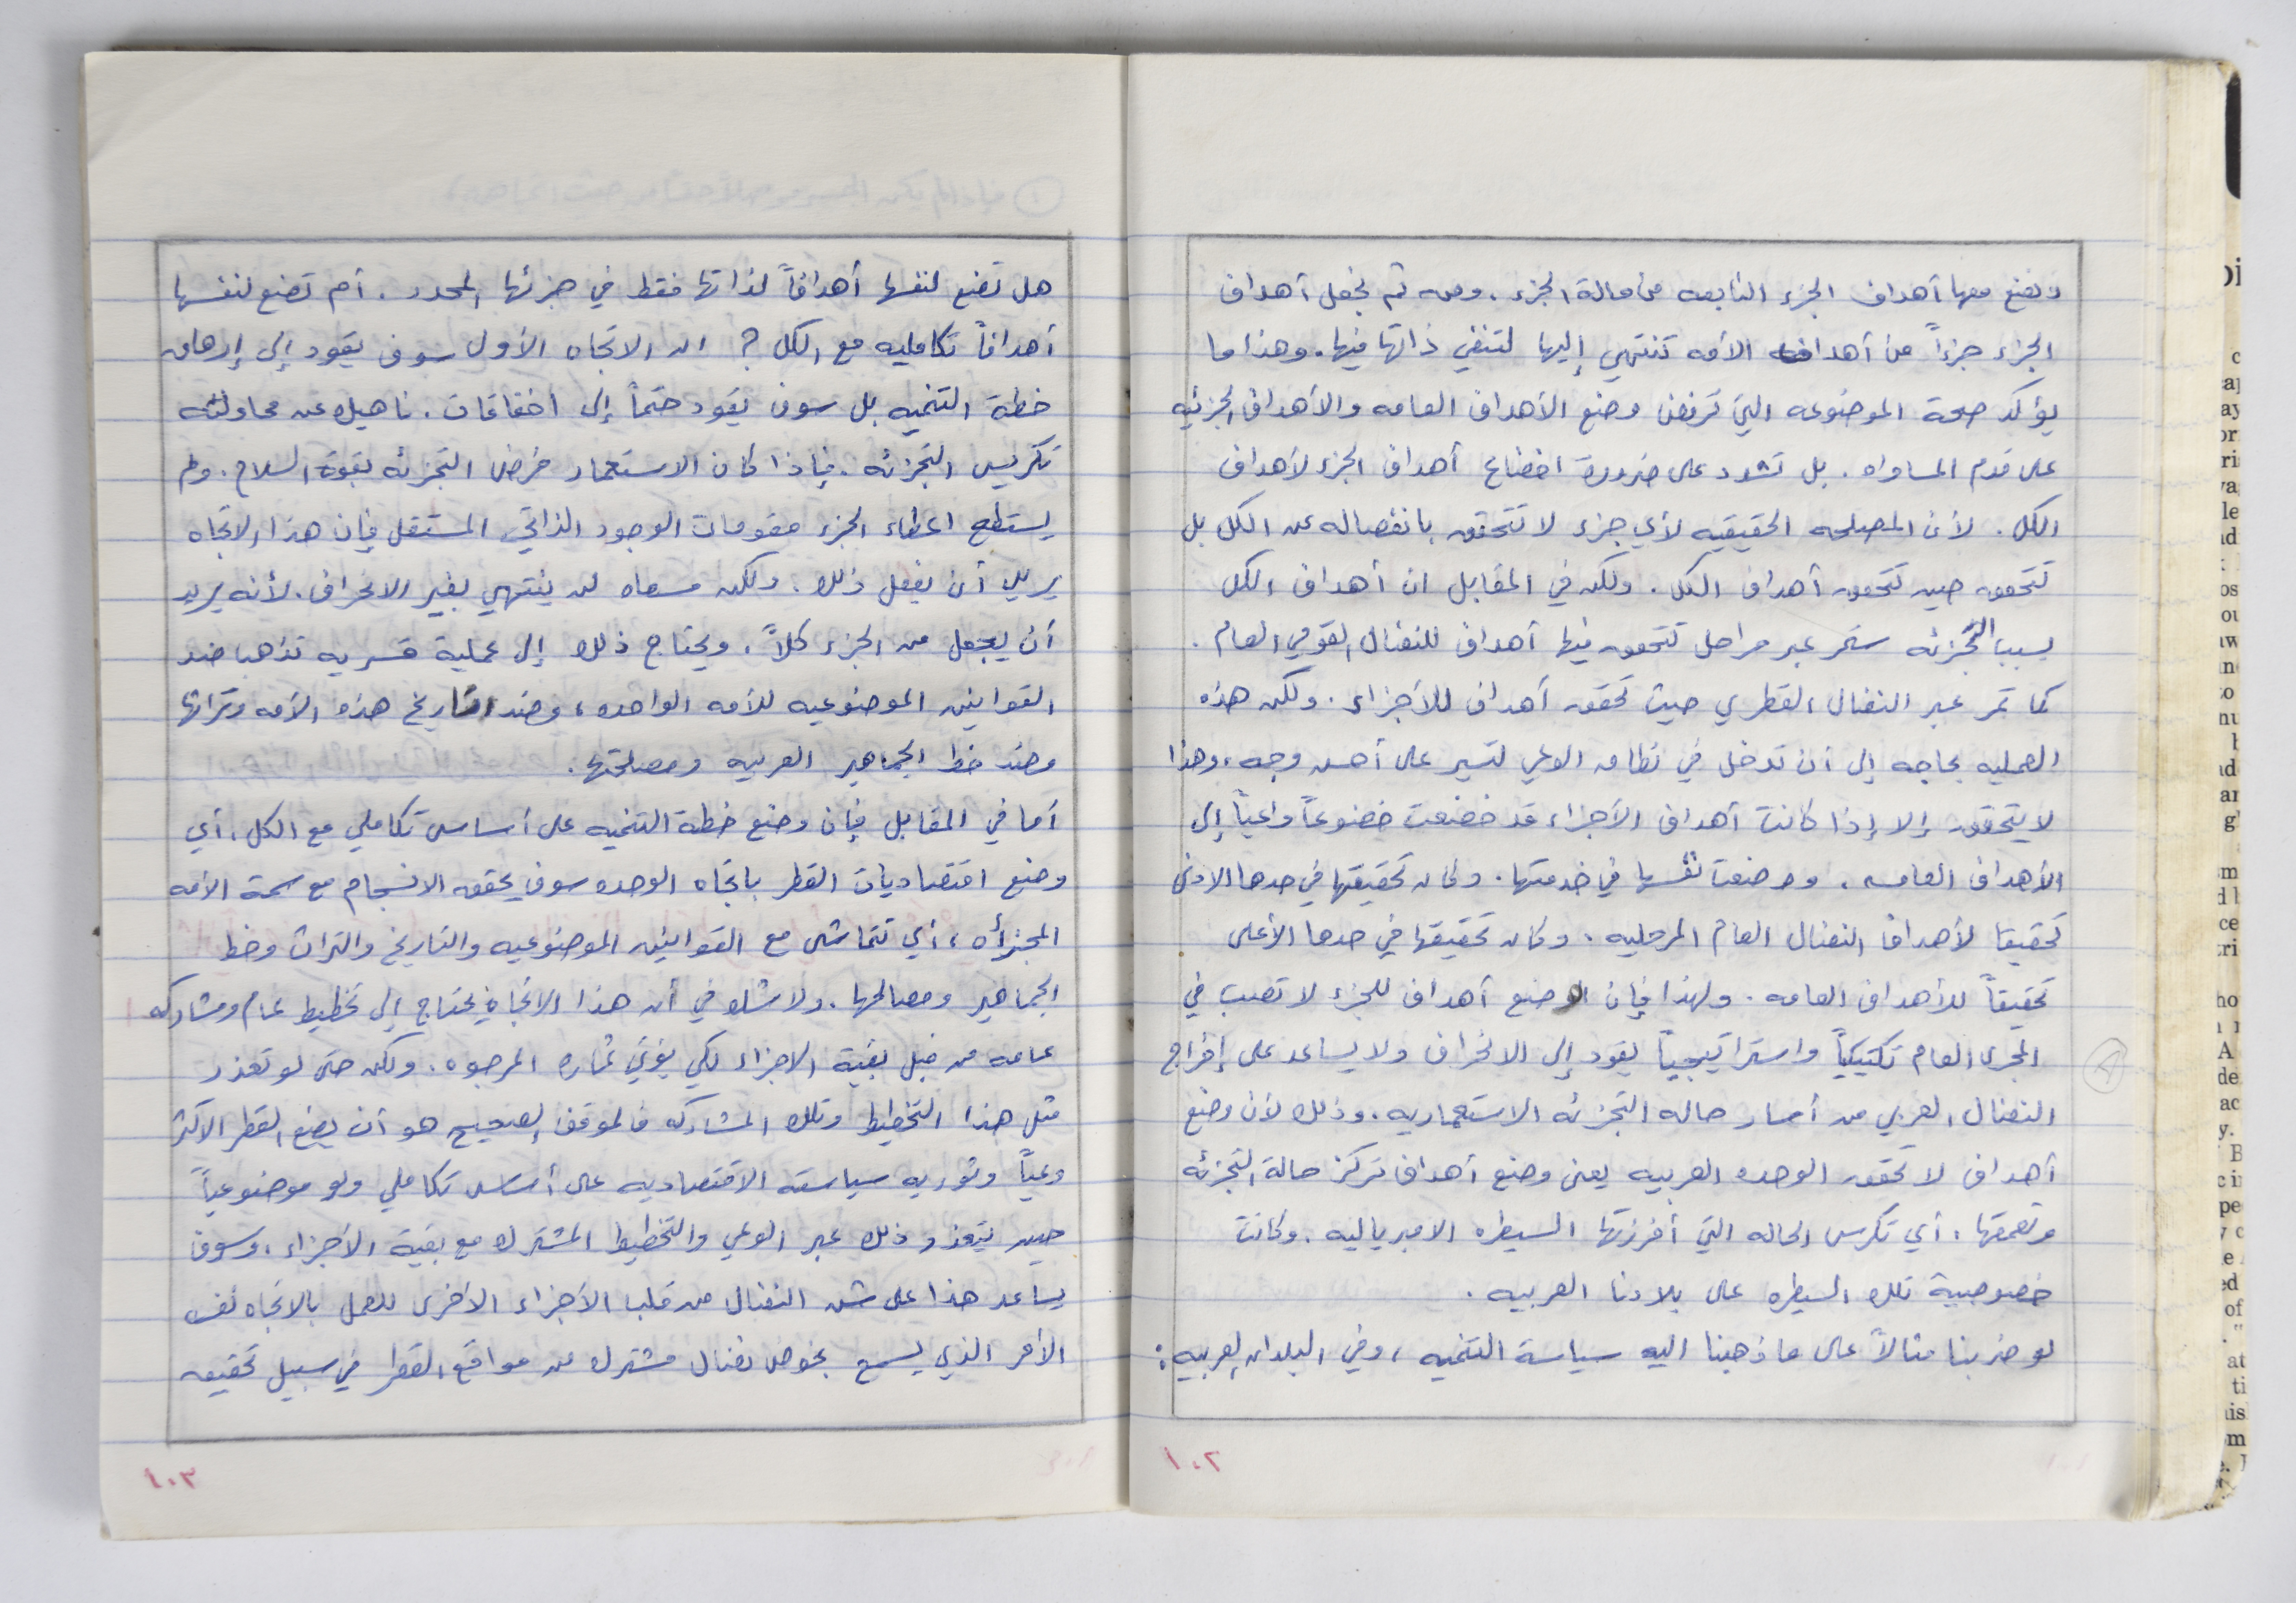 ونضع معها أهداف الجزء النابعه من حالة الجزء. ومن ثم نجعل أهداف
الجزء جزءاً من أهداف الأمه تنتهي إليها لتنفي ذاتها فيها. وهذا ما
يؤكد صحة الموضوعه التي ترفض وضع الأهداف العامه والأهداف الجزئيه
على قدم المساواه. بل تشدد على ضرورة اخضاع أهداف الجزء لأهداف
الكل. لأن المصلحه الحقيقيه لأي جزء لا تتحقق بانفصاله عن الكل بل
تتحقق حين تتحقق أهداف الكل. ولكن في المقابل ان أهداف الكل
بسبب التجزئه ستمر عبر مراحل تتحقق فيها أهداف للنضال القومي العام.
كما تمر عبر النضال القطري حيث تحقق أهداف للأجزاء. ولكن هذه
العمليه بحاجه إلى أن تدخل في نطاق الوعي لتسير على أحسن وجه، وهذا
لا يتحقق إلا إذا كانت أهداف الأجزاء قد خضعت خضوعاً واعياً إلى
الأهداف العامه. ووضعت نفسها في خدمتها. وكان تحقيقها في حدها الادنى
تحقيقا لأهداف النضال العام المرحليه. وكان تحقيقها في حدها الأعلى
تحقيقاً للأهداف العامه. ولهذا فإن وضع أهداف للجزء لا تصب في
المجرى العام تكتيكياً واستراتيجياً يقود إلى الانحراف ولا يساعد على إخراج
النضال العربي من أسار حاله التجزئه الاستعماريه. وذلك لأن وضع
أهداف لا تحقق الوحده العربيه يعني وضع أهداف تركز حالة التجزئه
وتعمقها، أي تكرس الحاله التي أفرزتها السيطره الامبرياليه. وكانت
خصوصية تلك السيطره على بلادنا العربيه.
لو ضربنا مثالاً على ما ذهبنا اليه سياسة التنميه، وفي البلدان العربيه:
١٠٢
هل تضع لنفسها أهدافاً لذاتها فقط في جزئها المحدد. أم تضع لنفسها
أهدافاً تكامليه مع الكل؟ ان الاتجاه الأول سوف يقود إلى إرهاق
خطة التنميه بل سوف يقود حتماً إلى اخفاقات. ناهيك عن محاولته
تكريس التجزئه. فإذا كان الاستعمار فرض التجزئه بقوة السلاح. ولم
يستطع اعطاء الجزء مقومات الوجود الذاتي المستقل فإن هذا الاتجاه
يريد أن يفعل ذلك. ولكن مسعاه لن ينتهي بغير الانحراف. لأنه يريد
أن يجعل من الجزء كلاً. ويحتاج ذلك إلى عملية قسريه تذهب ضد
القوانين الموضوعيه للأمه الواحده، وضد تاريخ هذه الأمه وتراثها
وضد خط الجماهير العربيه ومصلحتها.
أما في المقابل فإن وضع خطة التنميه على أساس تكاملي مع الكل، أي
وضع اقتصاديات القطر باتجاه الوحده سوف يحقق الانسجام مع سمة الأمه
المجزأه، أي تتماشى مع القوانين الموضوعيه والتاريخ والتراث وخط
الجماهير ومصالحها. ولا شك في أن هذا الاتجاه يحتاج إلى تخطيط عام ومشاركه
عامه من قبل بقية الاجزاء لكي يؤتي ثماره المرجوه. ولكن حتى لو تعذر
مثل هذا التخطيط وتلك المشاركه فالموقف الصحيح هو أن يضع القطر الاكثر
وعياً وثوريه سياسته الاقتصاديه على أساس تكاملي ولو موضوعياً
حين يتعذر ذلك عبر الوعي والتخطيط المشترك مع بقية الأجزاء، وسوف
يساعد هذا على شن النضال من قلب الأجزاء الأخرى للعمل بالاتجاه نفسه
الأمر الذي يسمح بخوض نضال مشترك من مواقع القطر في سبيل تحقيق
١٠٣